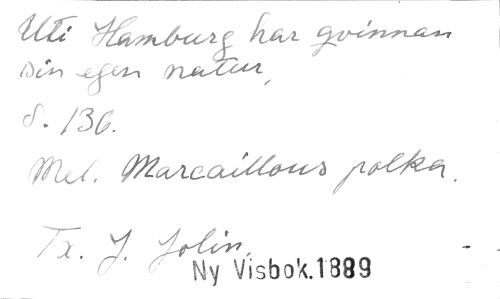 Uti Hamburg har qvinnan
sin egen natur,
S. 136.
Mel. Marcaillous polka.
Tx. J. Jolin.
Ny Visbok.1889